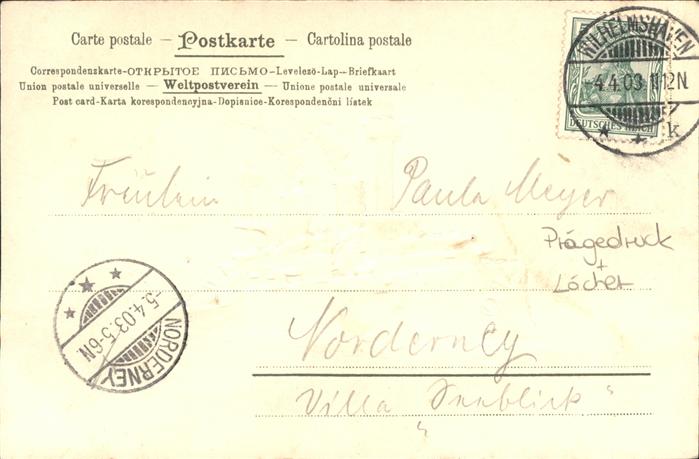 Carte postale – Postkarte – Cartolina postale
Correspondenzkarte-ОТКРЫТОЕ ПИСЬМО-Levelező-Lap–Briefkaart
Union postale universelle – Weltpostverein – Unione postale universale
Post card-Karta korespondencyjna-Dopisnice-Korespondenční lístek
WILHELMSHAVEN
-4.4.03. 11-12N.
* * k
DEUTSCHES REICH
Fräulein Paula Meyer
Prägedruck
+
Löcher
-5.4.03.5-6N.
NORDERNEY
Norderney
Villa „Seeblick“